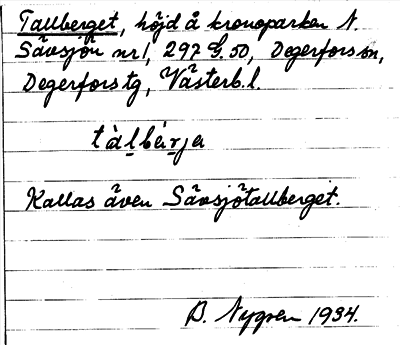 Tallberget, höjd å kronoparken N.
Sävsjön nr 1, 297 G. 50, Degerfors sn,
Degerfors tg, Västerb. l.
tàlbärja
Kallas även Sävsjötallberget.
B. Nygren 1934.